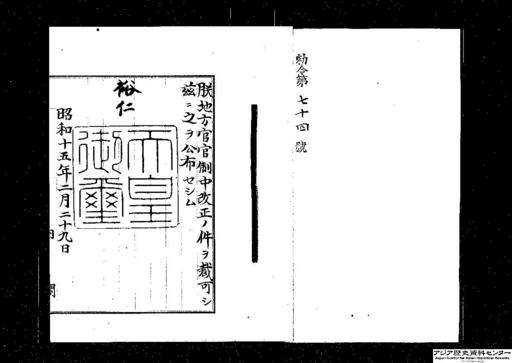 勅令第七十四號
朕地方官官制中改正ノ件ヲ裁可シ
茲ニ之ヲ公布セシム
裕仁
天皇
御璽
昭和十五年二月二十九日
内閣
アジア歴史資料センター
Japan Center for Asian Historical Records